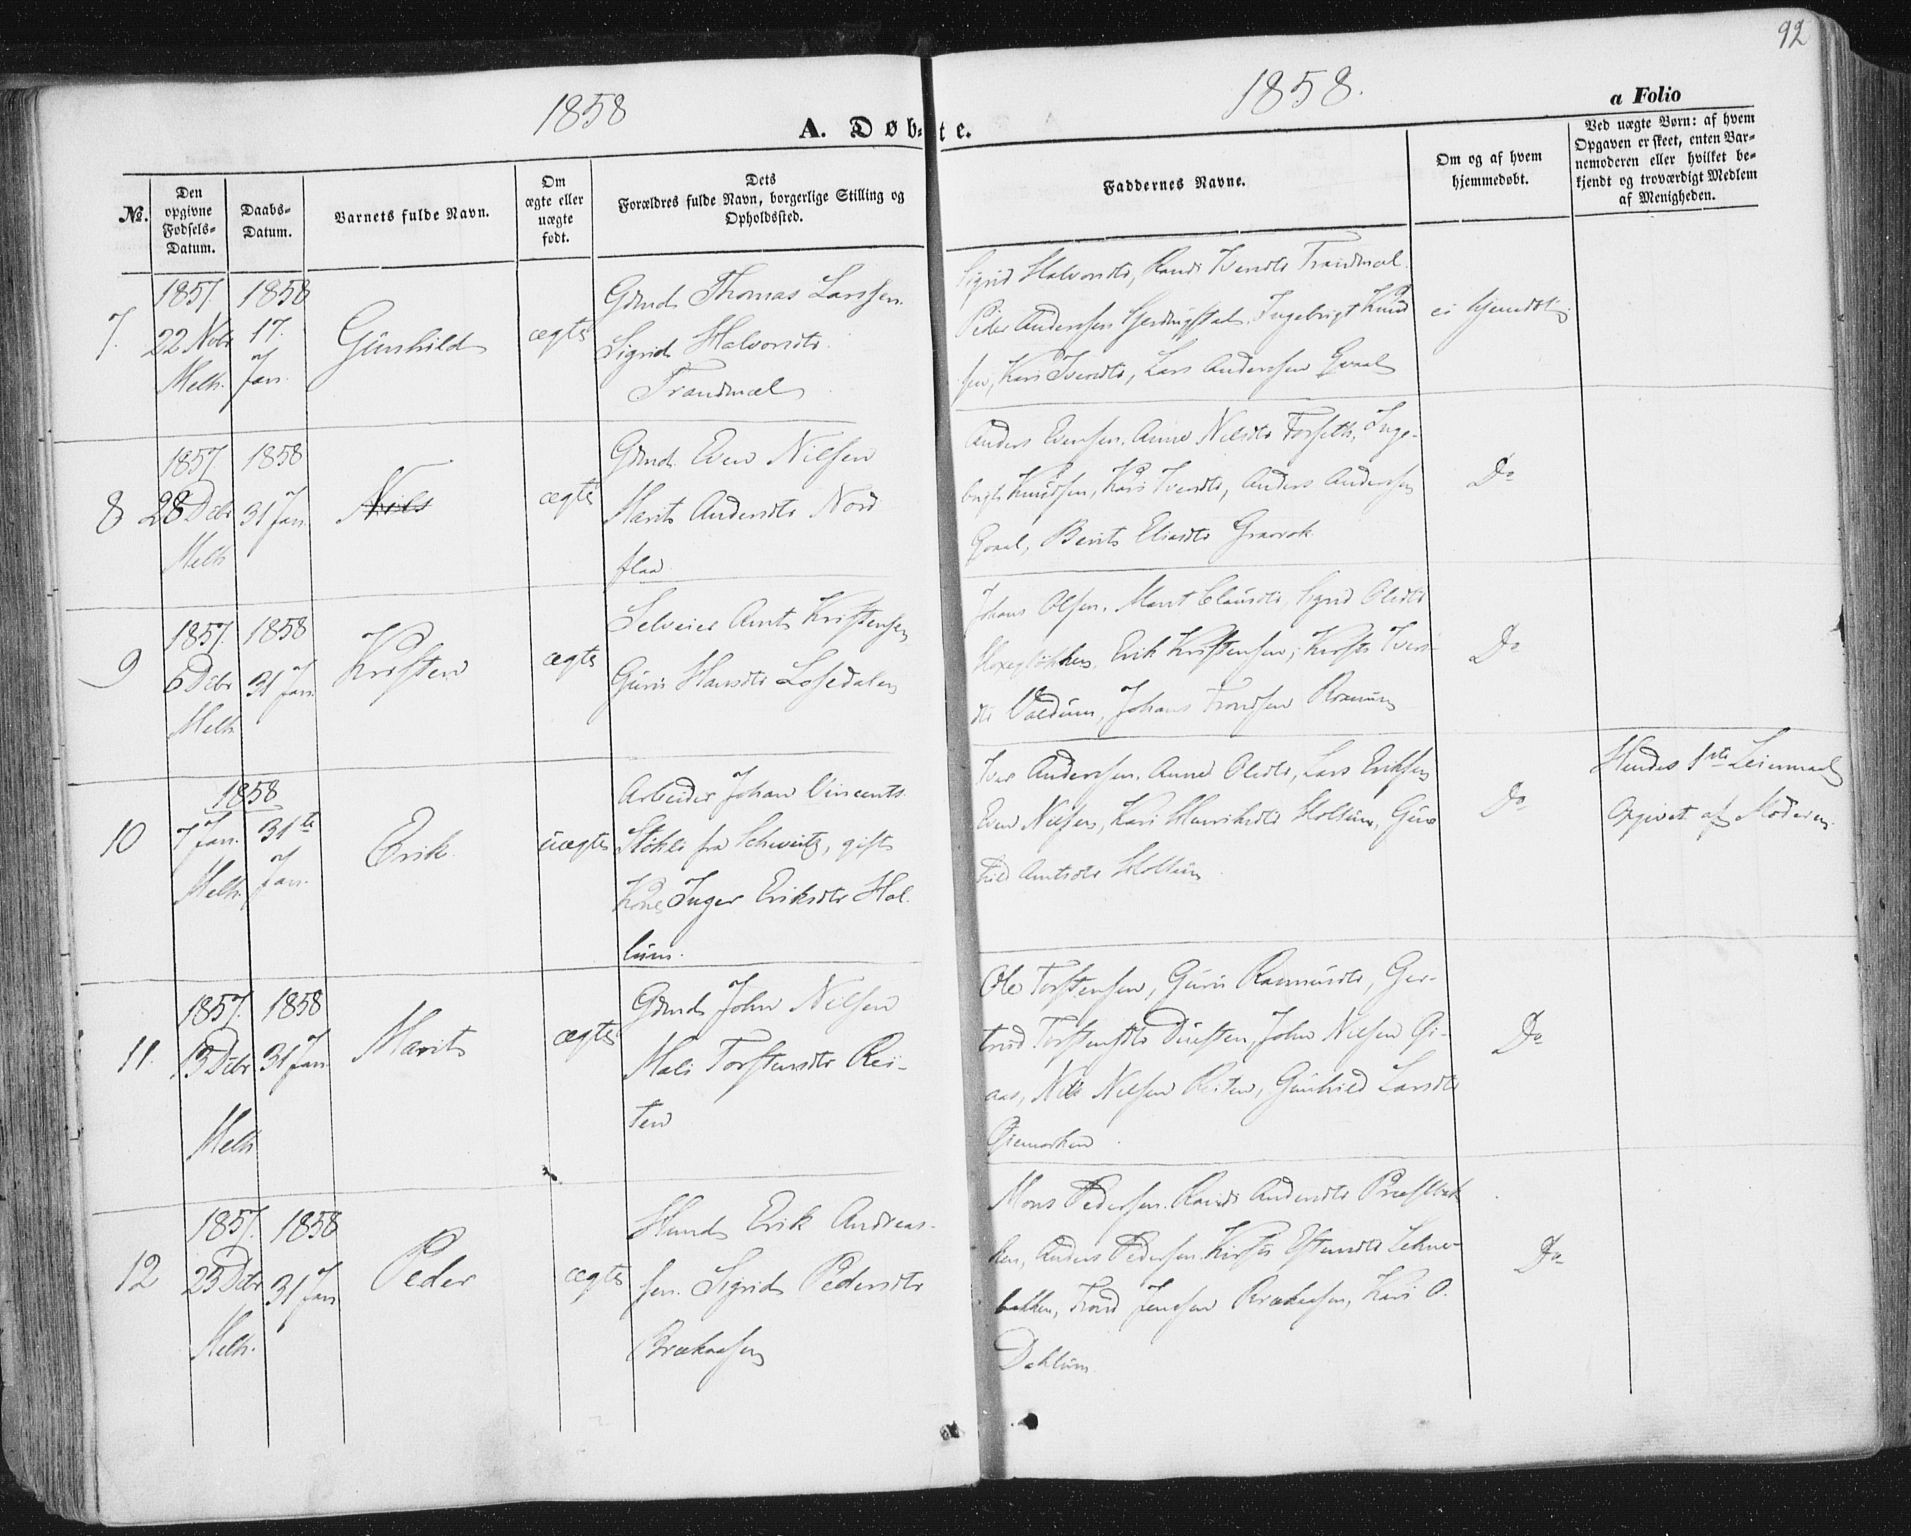 92
1858
1858.
a Folio
A. Døbte.
No.
Den opgivne Fødsels-Datum.
Daabs-Datum.
Barnets fulde Navn.
Om ægte eller uægte født.
Dets Forældres fulde Navn, borgerlige Stilling og Opholdssted.
Faddernes Navne.
Om og af hvem hjemmedøbt.
Ved uægte Børn: af hvem Opgaven er skeet, enten Barnemoderen eller hvilket bekjendt og troværdigt Medlem af Menigheden.
7.
1857.
22 Nobr
Melh.
1858
17.
Jan.
Günhild
ægte
Grmd. Thomas Larssen.
Sigrid Halvorsdtr.
Trandmæl
Sigrid Halvorsdtr, Randi Iversdtr Trandmæl.
Peder Anderssen Gjerdmigstad, Ingebrigt Knud
sen, Kari Iversdtr, Lars Anderssen Qvaal
ei hjemdbt.
8
1857
28 Debr
Melh
1858
31 Jan.
Niels
ægte
Grmd. Even Nilsen
Marit Andersdtr Nord
flaa
Anders Evensen. Anne Nilsdtr Forseth, Inge-
brigt Knudsen, Kari Iversdtr, Anders Andersen
Qvaal, Berit Eliasdtr Gravrok
Do
9
1857.
6 Debr
Melh
1858
31 Jan.
Kristen
ægte
Selveier Arnt Kristensen
Guri Hansdtr Losedalen
Johans Olsen. Marit Clausdtr, Sigrid Olsdtr
Erik Kristensen, Kirsti Ivers-
dtr Valdum, Johans Trondsen
Do
10
1858
7 Jan.
Melh.
31te
Jan.
Erik.
uægte
Arbeider Johan Vincents
Stöhli fra Schweitz, gift
Kone Inger Eriksdtr Hol-
lum.
Iver Anderssen. Anne Olsdtr, Lars Eriksen
Even Nilsen, Kari Henriksdtr Hollum, Gün
hild Arntsdtr Hollum
Do
Hendes 1ste Leiermaal
Opgivet af Moderen.
11.
1857.
13 Debr
Melh
1858
31 Jan
Marit
ægte
Grmd. John Nilsen
Mali Torstensdtr Rei-
ten
Ole Torstensen, Guri Rasmusdtr, Ger-
trud Torstensdtr Duesten, John Nilsen Øi-
aas, Nils Nilsen Reiten, Gunhild Larsdtr
Øiemarken
Do
12
1857.
23 Debr
Melh.
1858
31 Jan
Peder
ægte
Husmd. Erik Andreas-
sen. Sigrid Pedersdtr
Brækaasen
Mons Pederssen. Randi Andersdtr Præstbak
ken, Anders Pedersen. Kirsti Estensdtr Lehne-
bakken, Trond Jensen Brækaasen, Kari O.
Dahlum.
Do